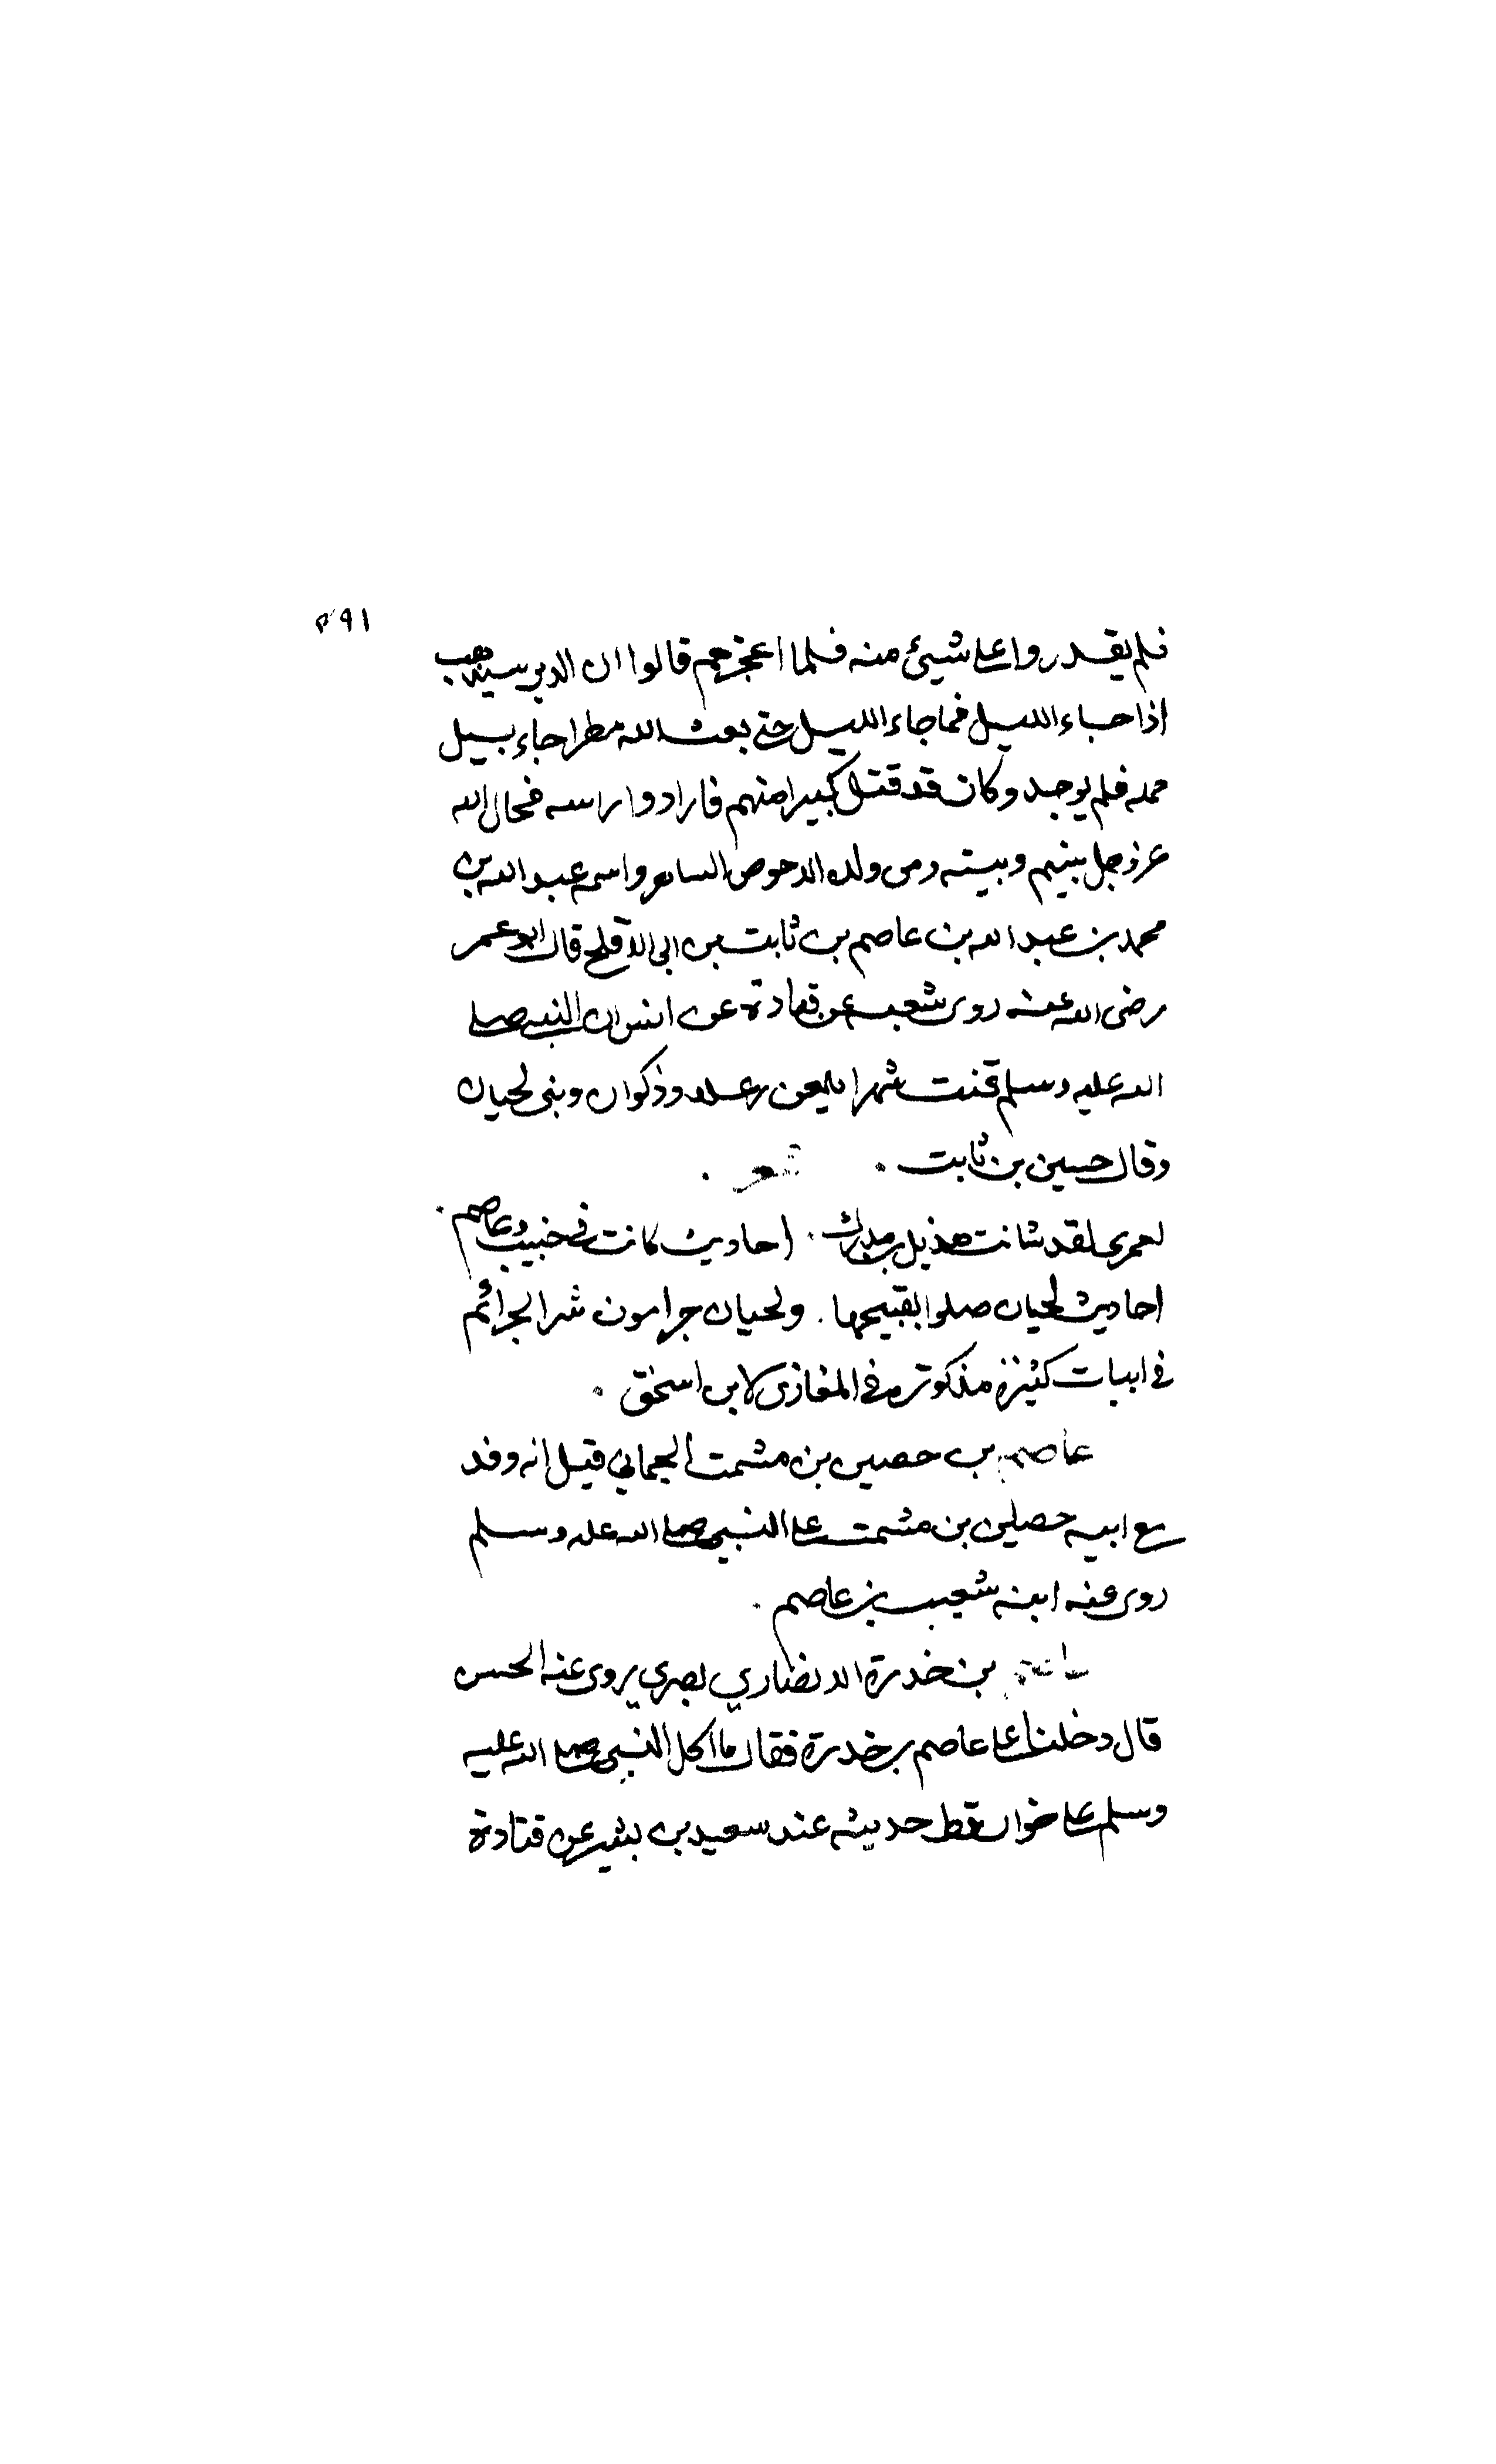 ٢٩١
فلم يقدروا على شيئ منه فلما اعجزهم قالوا ان الدبر سيذهب
اذا جاء الليل فما جاء الليل حتى بعث الله مطرا جاء بسيل
حمله فلم يوجد وكان قد قتل كبيرا منهم فارادوا راسه فحال الله
عز وجل بينهم وبينه ومن ولده الاحوص الشاعر واسمه عبد الله بن
محمد بن عبد الله بن عاصم بن ثابت بن ابى الاقلح قال ابو عمر
رضى الله عنه روى شعبه عن قتادة عن انس ان النبى صلى
الله عليه وسلم قنت شهرا يلعن رعلا وذكوان وبنى لحيان
وقال حسين بن ثابت . شعر .
لعمرى لقد شانت هذيل بن مدرك . احاديث كانت فى خبيب وعاصم .
احاديث لحيان صلوا بقبيحها . ولحيان جرامون شر الجرائم
فى ابيات كثيرة مذكورة فى المغازى لابن اسحق .
عاصم بن حصين بن مشمت الحمانى قيل انه وفد
مع ابيه حصين بن مشمت على النبى صلى الله عليه وسلم
روى عنه ابنه شعيب بن عاصم .
عاصم بن خدرة الانصاري بصري يروى عنه الحسن
قال دخلنا على عاصم بن خدرة فقال ما اكل النبى صلى الله عليه
وسلم على خوان قط حديثه عند سعيد بن بشير عن قتادة